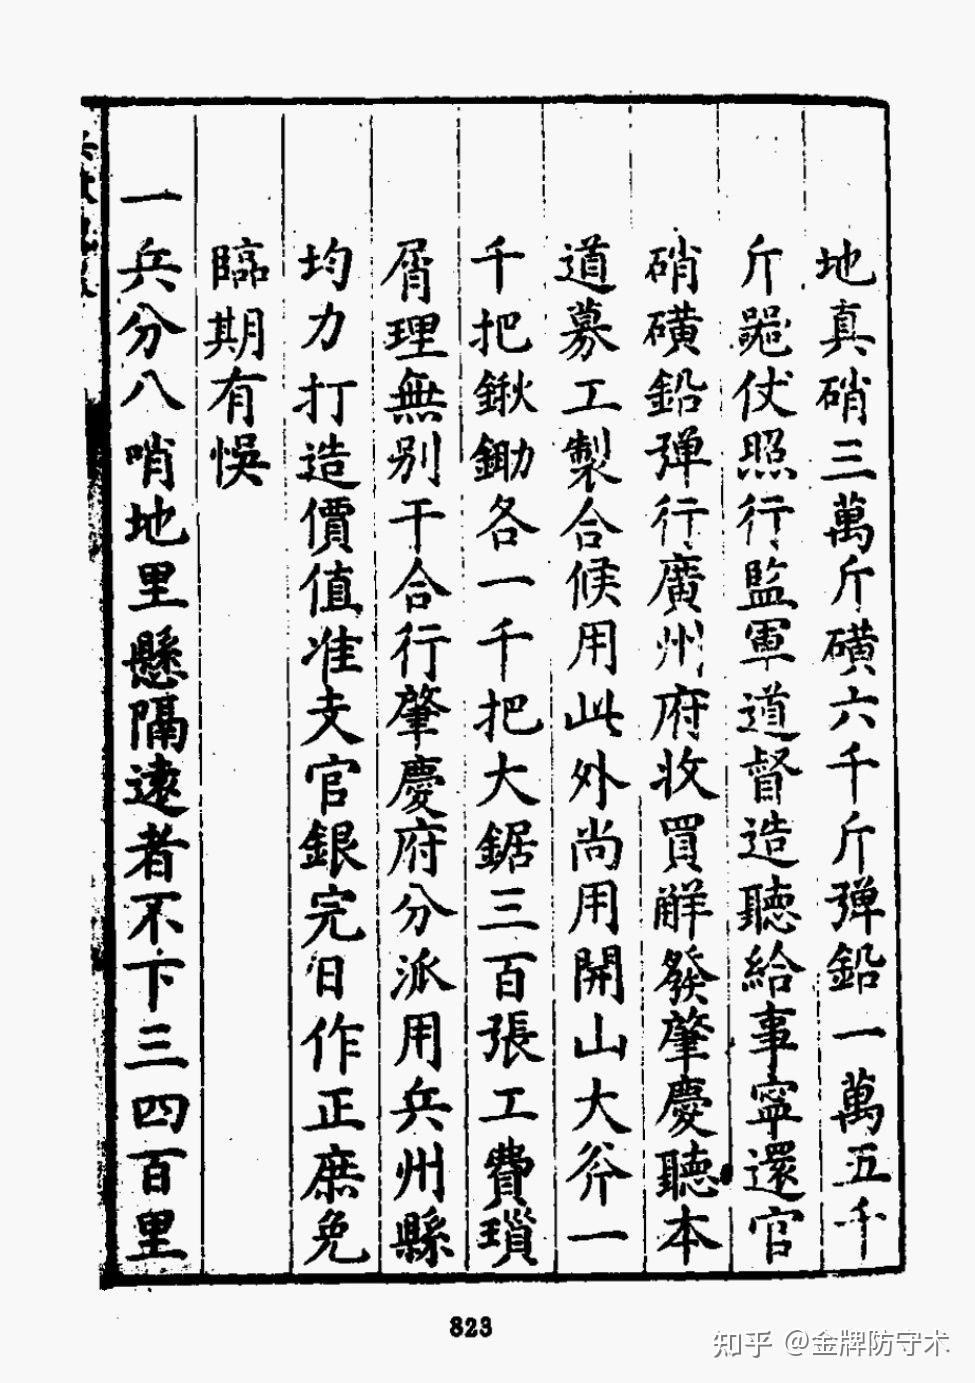 地真硝三萬斤磺六千斤弾鉛一萬五千
斤噐仗照行監軍道督造聽給事寧還官
硝磺鉛弾行廣州府收買觧發肇慶聽本
道募工製合候用此外尚用開山大斧一
千把鍬鋤各一千把大鋸三百張工費瑣
屑理無别干合行肇慶府分派用兵州縣
均力打造價值准支官銀完日作正庶免
臨期有悞
一兵分八哨地里懸隔逺者不下三四百里
323
知乎 @金牌防守术